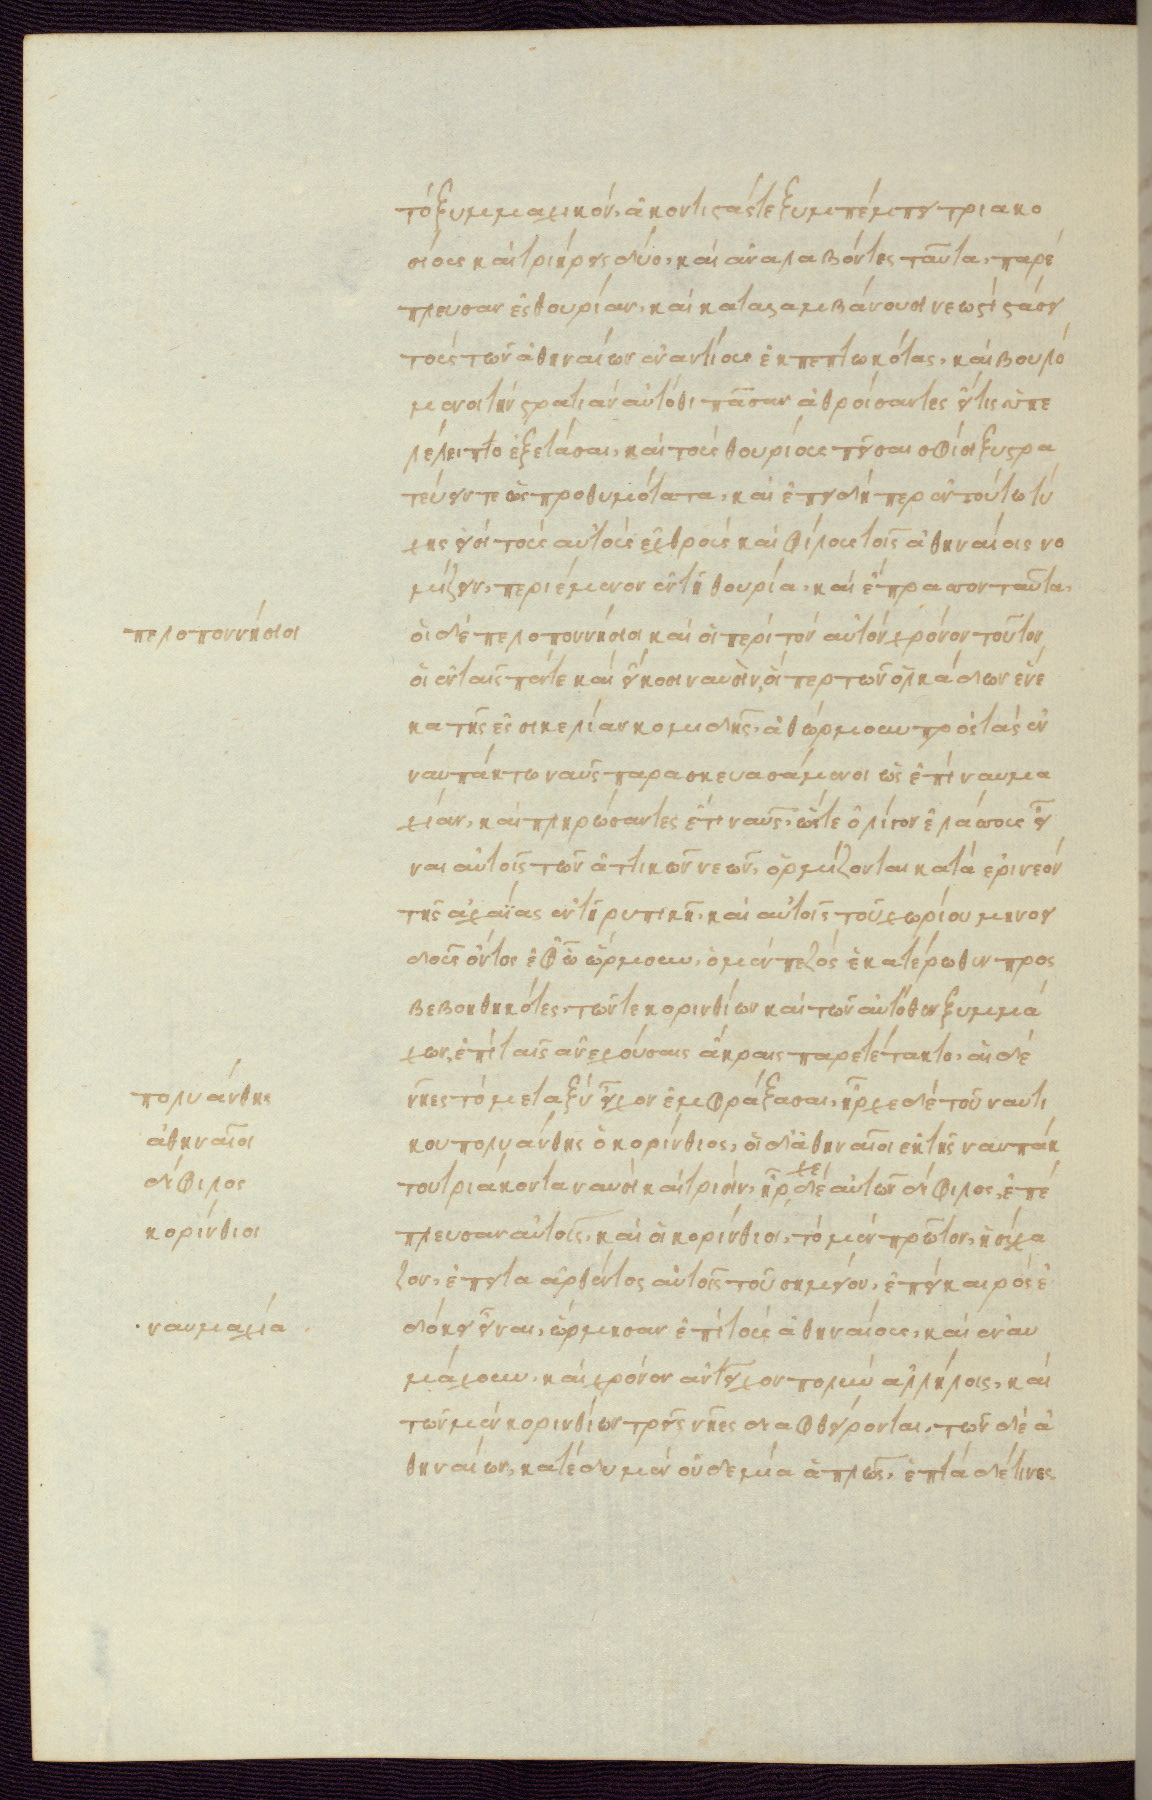 τὸ ξυμμαχικὸν, ἀκοντιστάς τε ξυμπέμπειν τριακο
σίους καὶ τριήρεις δύο, καὶ ἀναλαβόντες ταῦτα, παρέ
πλευσαν ἐς θουρίαν, καὶ καταλαμβάνουσι νεωστὶ στάσει
τοὺς τῶν ἀθηναίων ἐναντίους ἐκπεπτωκότας, καὶ βουλό
μενοι τὴν στρατιὰν αὐτόθι πᾶσαν ἀθροίσαντες εἴ τις ὑπε
λέλειπτο ἐξετάσαι, καὶ τοὺς θουρίους πεῖσαι σφίσι ξυστρα
τεύειν τε ὡς προθυμότατα, καὶ ἐπειδή περ ἐν τούτω τύ
χης εἰσὶ τοὺς αὐτοὺς ἐχθροὺς καὶ φίλους τοῖς ἀθηναίοις νο
μίζειν, περιέμενον ἐν τῆ θουρία, καὶ ἔπρασσον ταῦτα,
πελοποννήσιοι
οἱ δὲ πελοποννήσιοι καὶ οἱ περὶ τὸν αὐτὸν χρόνον τοῦτον
οἱ ἐν ταῖς πέντε καὶ εἴκοσι ναυσὶν, οἵπερ τῶν ὁλκάδων ἕνε
κα τῆς ἐς σικελίαν κομιδῆς, ἀνθώρμουν πρὸς τὰς ἐν
ναυπάκτω ναῦς παρασκευασάμενοι ὡς ἐπὶ ναυμα
χίαν, καὶ πληρώσαντες ἔτι ναῦς, ὥστε ὀλίγον ἐλάσσους εἶ
ναι αὐτοῖς τῶν ἀττικῶν νεῶν, ὁρμίζονται κατὰ ἐρινεὸν
τῆς ἀχαΐας ἐν τῆ ρυπικῆ, καὶ αὐτοῖς τοῦ χωρίου μηνοει
δοῦς ὄντος ἐφ' ὧ ὥρμουν, ὁ μὲν πεζὸς ἑκατέρωθεν προς
βεβοηθηκότες, τῶν τε κορινθίων καὶ τῶν αὐτόθεν ξυμμά
χων, ἐπὶ ταῖς ἀνεχούσαις ἄκραις παρετέτακτο, αἱ δὲ
πολυάνθης
νῆες τὸ μεταξὺ εἶχον ἐμφράξασαι, ἦρχε δὲ τοῦ ναυτι
ἀθηναῖοι
κου πολυάνθης ὁ κορίνθιος, οἱ δ' ἀθηναῖοι ἐκ τῆς ναυπάκ
δίφιλος
του τριάκοντα ναυσὶ καὶ τρισὶν, ἦρχε δὲ αὐτῶν δίφιλος, ἐπέ
κορίνθιοι
πλευσαν αὐτοῖς, καὶ οἱ κορίνθιοι, τὸ μὲν πρῶτον, ἡσύχα
ζον, ἔπειτα ἀρθέντος αὐτοῖς τοῦ σημείου, ἐπεὶ καιρὸς ἐ
ναυμαχία
δόκει εἶναι, ὥρμησαν ἐπὶ τοὺς ἀθηναίους, καὶ ἐναυ
μάχουν, καὶ χρόνον ἀντεῖχον πολὺν ἀλλήλοις, καὶ
τῶν μὲν κορινθίων τρεῖς νῆες διαφθείρονται, τῶν δὲ ἀ
θηναίων, κατέδυ μὲν οὐδεμία ἁπλῶς, ἑπτὰ δέ τινες